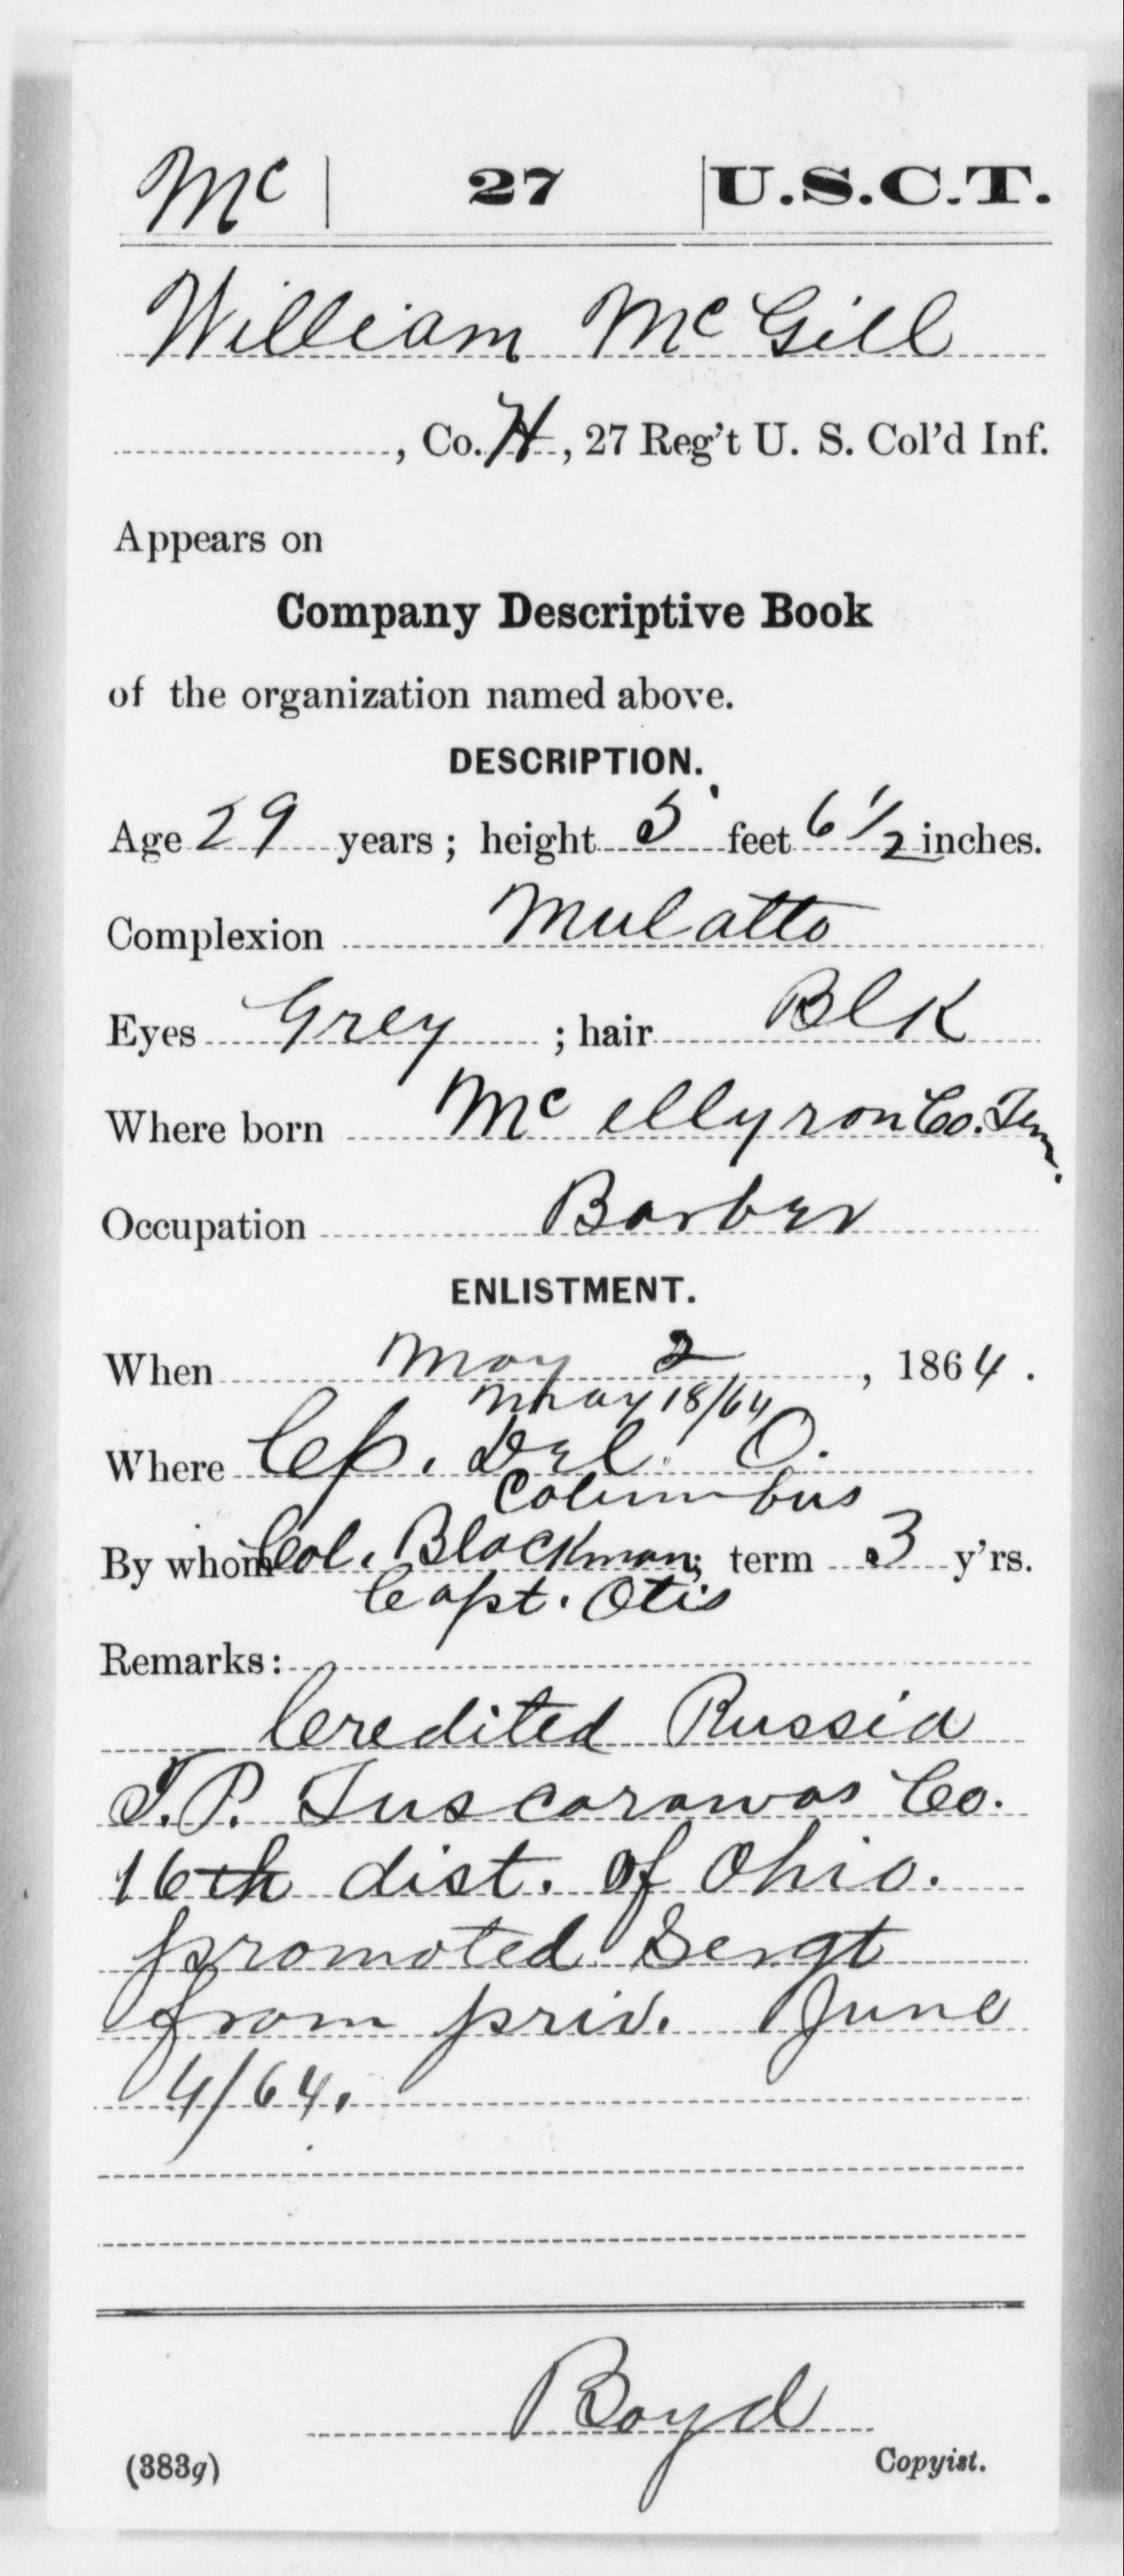 Mc | 27 | U.S.C.T.
William McGill
, Co. H, 27 Reg't U. S. Col'd Inf.
Appears on
Company Descriptive Book
of the organization named above.
DESCRIPTION.
Age 29 years; height 5 feet 6 1/2 inches.
Complexion Mulatto
Eyes Grey ; hair Blk
Where born Mc ellyron Co. Ten.
Occupation Barber
ENLISTMENT.
When May 2, 1864.
May 18/64
Where Cp. Del. O.
Columbus
By whom Col. Blackman; term 3 y'rs.
Capt. Otis
Remarks:
Credited Russia
T.P. Tuscarawas Co.
16th dist. of Ohio.
promoted Sergt
from priv. June
4/64.
Boyd
(383g) Copyist.